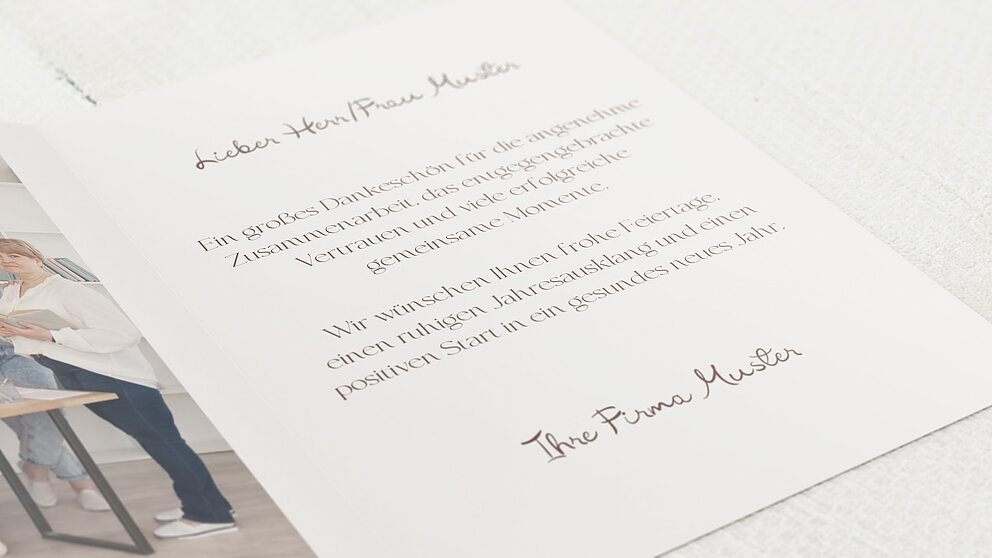 Lieber Herr/Frau Muster
Ein großes Dankeschön für die angenehme
Zusammenarbeit, das entgegengebrachte
Vertrauen und viele erfolgreiche
gemeinsame Momente.
Wir wünschen Ihnen frohe Feiertage,
einen ruhigen Jahresausklang und einen
positiven Start in ein gesundes neues Jahr.
Ihre Firma Muster